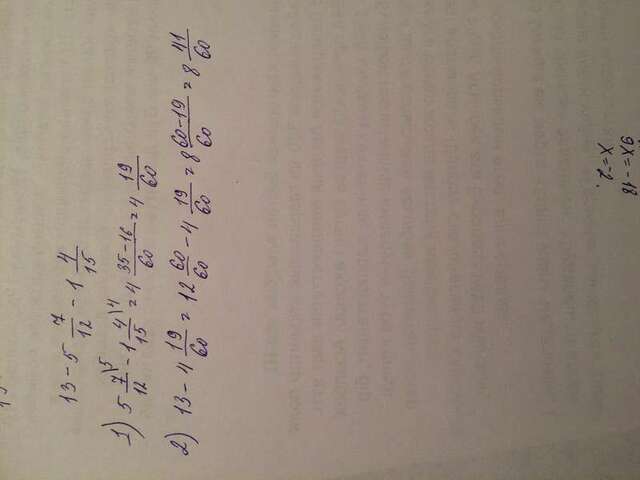 13 - 5 7/12 - 1 4/15
1) 5 7\5/12 - 1 4\4/15 = 4 35-16/60 = 4 19/60
2) 13 - 4 19/60 = 12 60/60 - 4 19/60 = 8 60-19/60 = 8 41/60
9x=-18
x=-2.